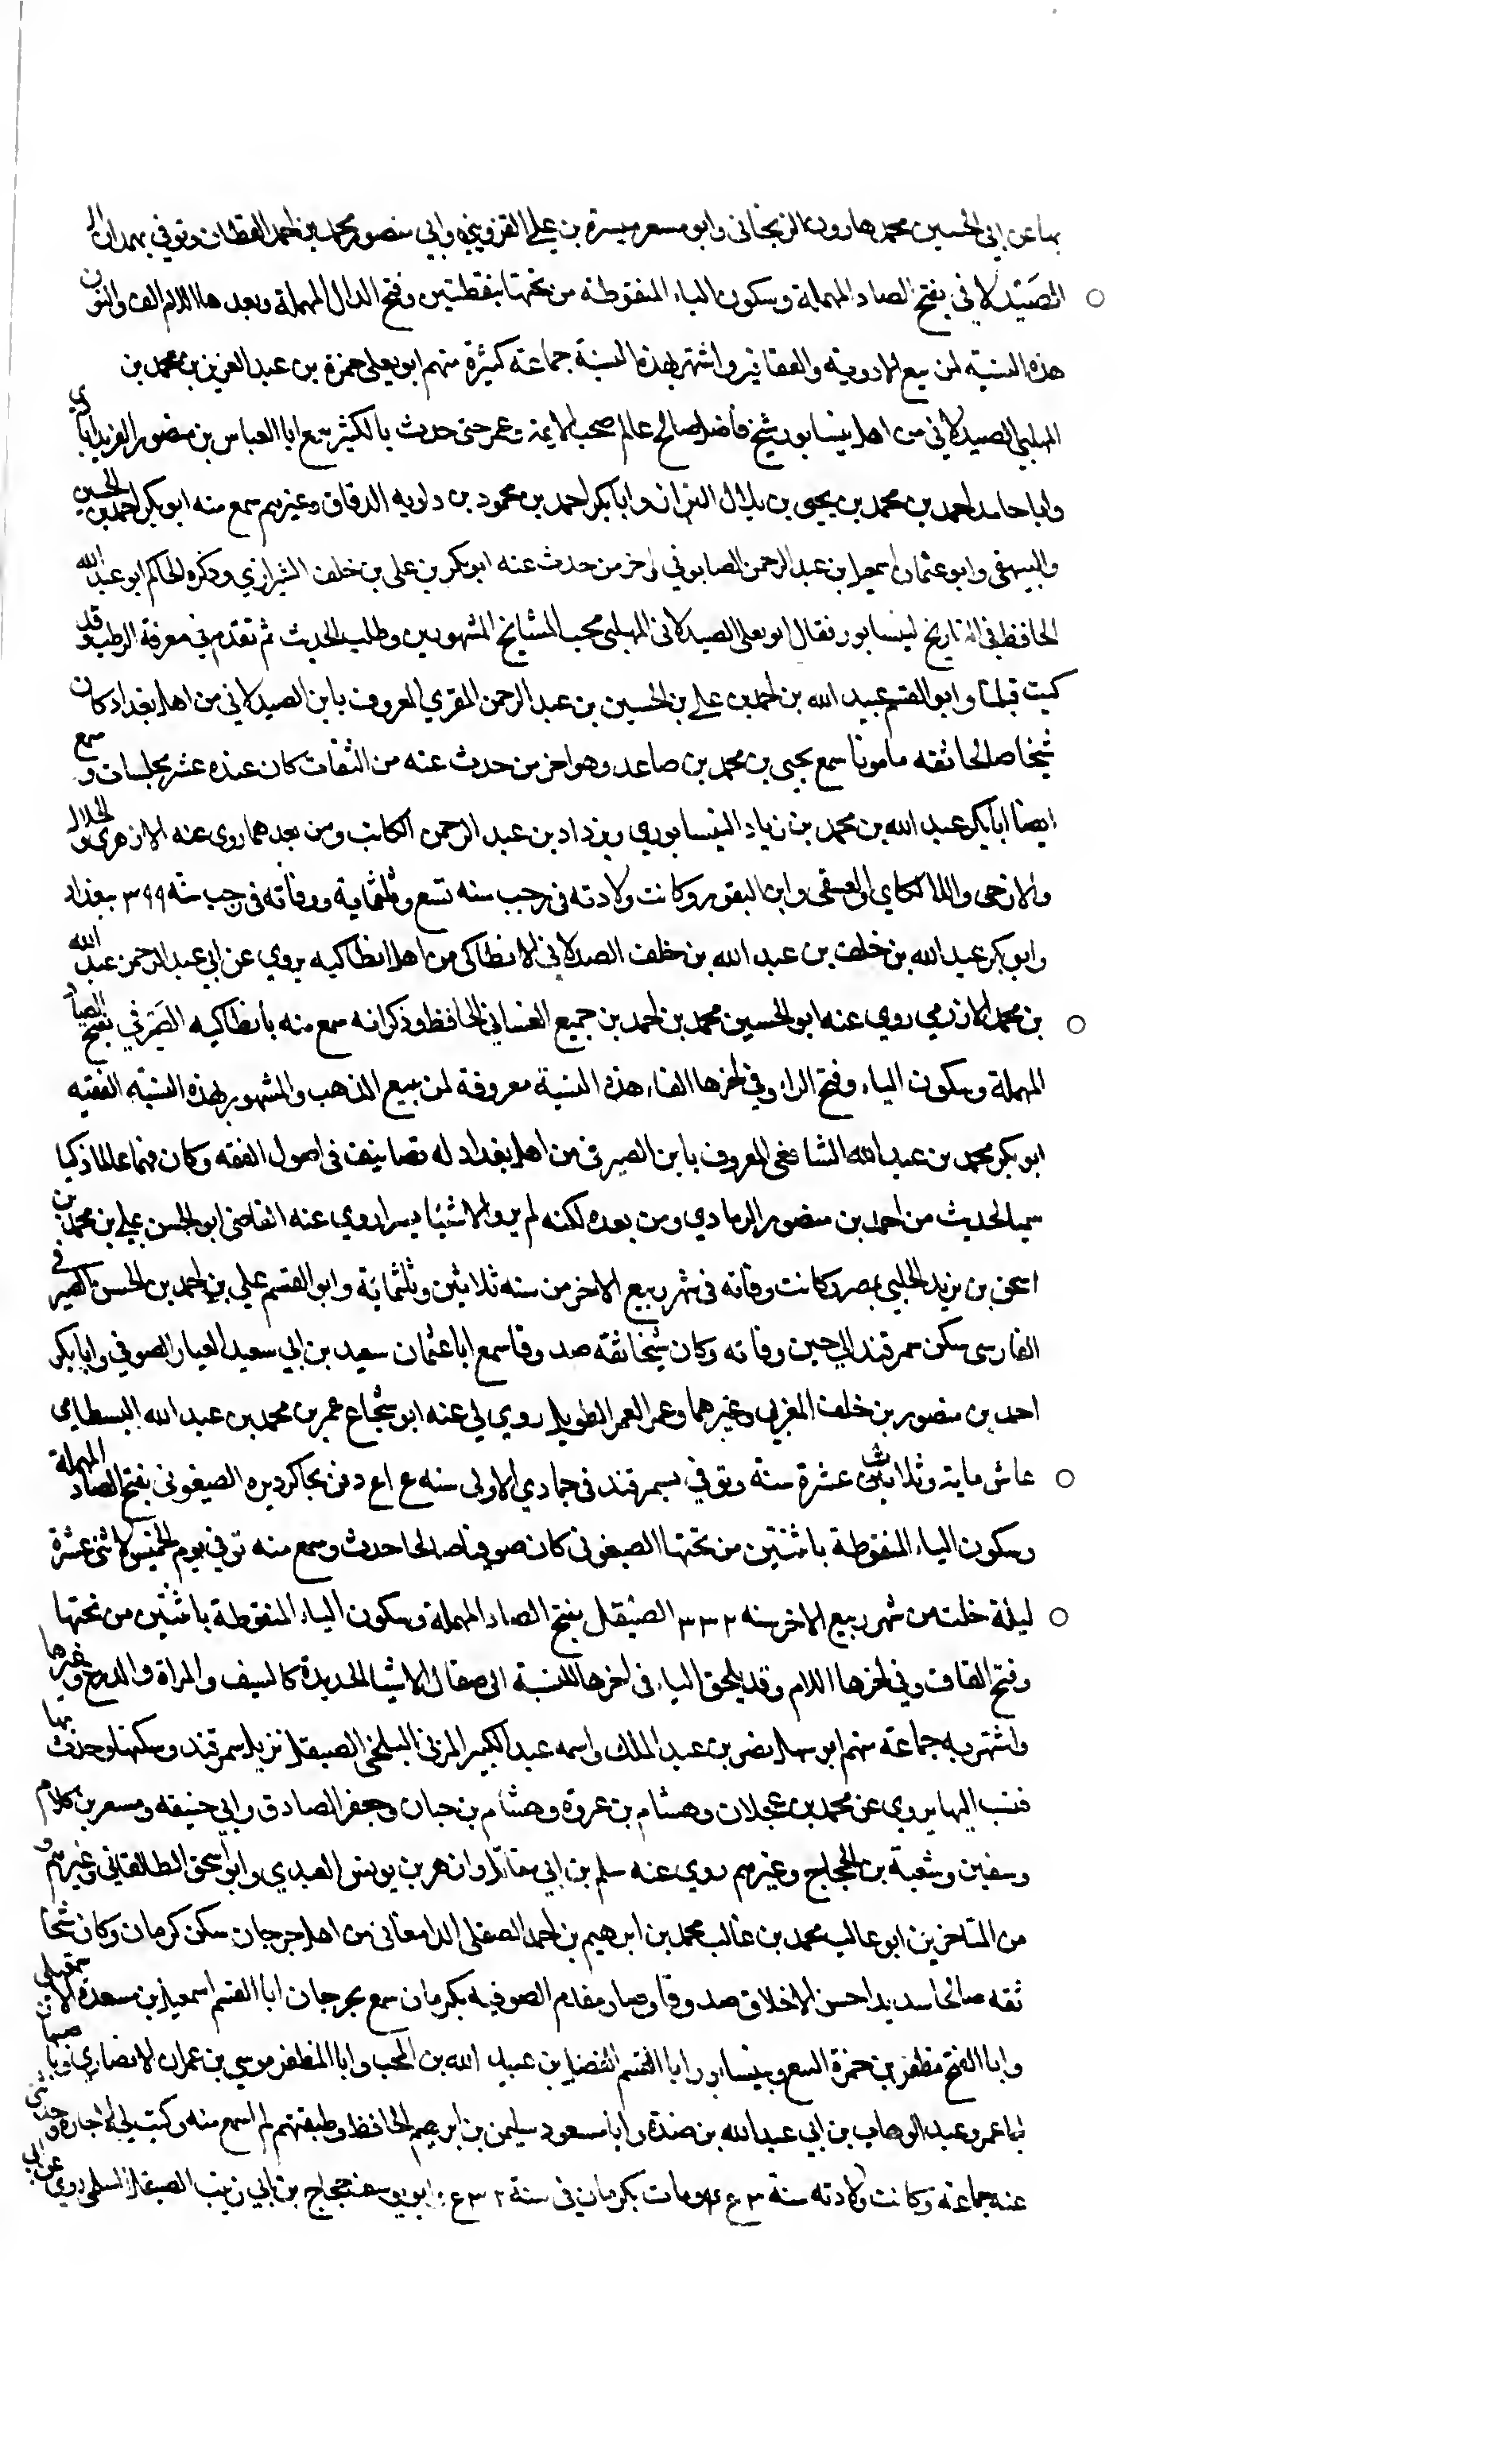 بها عن ابي الحسين محمد هارون الزنجاني وابو مسعر ميسرة بن علي القزويني وابي منصور محمد بن احمد القطان وتوفي بهمدان
الصَيدلاني بفتح الصاد المهملة وسكون الياء المنقوطة من تحتها بنقطتين وفتح الدال المهملة وبعدها اللام الف والنون
هذه النسبة لمن يبيع الادوية والعقاقير واشتهر بهذه النسبة جماعة كثيرة منهم ابو يعلى حمزة بن عبد العزيز بن محمد بن
المهلبي الصيدلاني من اهل نيسابور شيخ فاضل صالح عالم صحب الائمة وعمر حتى حدث بالكثير سمع ابا العباس بن منصور الفرنداباذي
وابا حامد احمد بن محمد بن يحيى بن بلال البزاز وابا بكر احمد بن محمود بن دلويه الدقاق وغيرهم سمع منه ابو بكر احمد بن الحسين
والبيهقي وابو عثمان اسمعيل بن عبد الرحمن الصابوني اخر من حدث عنه ابو بكر بن علي بن خلف الشيرازي وذكره الحاكم ابو عبد الله
الحافظ في التاريخ لنيسابور فقال ابو يعلى الصيدلاني المهلبي محب المشايخ المشهورين وطلب الحديث ثم تقدم في معرفة الطب وقد
كيت قبلنا وابو القسم عبيد الله بن احمد بن علي بن الحسين بن عبد الرحمن المقري المعروف بابن الصيدلاني من اهل بغداد كان
شيخا صالحا ثقه مامونا سمع يحيى بن محمد بن صاعد وهو اخر من حدث عنه من الثقات كان عنده عشر مجلسات وسمع
ايضا ابا بكر عبد الله بن محمد بن زياد النيسابوري ويزداد بن عبد الرحمن الكاتب ومن بعدهما روى عنه الازهري والخلال
والازجي واللالكاي والعتيقي وابن النقور وكانت ولادته في رجب سنه تسع وثلثماية ووفاته في رجب سنة ٣٩٩ ببغداد
وابو بكر عبد الله بن خلف بن عبد الله بن خلف الصدلاني الانطاكي من اهل انطاكيه يروي عن ابي عبد الرحمن عبد الله
بن محمد الازرمي روي عنه ابو الحسين محمد بن احمد بن جميع الغساني الحافظ وذكر انه سمع منه بانطاكيه الصَيرفي بفتح الصاد
المهملة وسكون الياء وفتح الراء وفي اخرها الفاء هذه النسبة معروفة لمن يبيع الذهب والمشهور بهذه النسبة الفقيه
ابو بكر محمد بن عبد الله الشافعي المعروف بابن الصيرفي من اهل بغداد له تصانيف في اصول الفقه وكان فهما عالما ذكيا
سمع الحديث من احمد بن منصور الرمادي ومن بعده لكنه لم يرو الا شيئا يسيرا روي عنه القاضي ابو الحسن علي بن محمد بن
اسحق بن يزيد الحلبي بمصر كانت وفاته في شهر ربيع الاخر من سنه ثلاثين وثلثماية وابو القسم علي بن احمد بن الحسن الصيرفي
الفارسي سكن سمرقند الي حين وفاته وكان شيخا ثقه صدوقا سمع ابا عثمان سعيد بن ابي سعيد العيار الصوفي وابا بكر
احمد بن منصور بن خلف المغربي وغيرهما وعمر العمر الطويل روي لي عنه ابو شجاع عمر بن محمد بن عبد الله البسطامي
عاش ماية وثلاث عشرة سنة وتوفي بسمرقند في جمادي الاولى سنه دفن بجاكرديزه الصيغوني بفتح الصاد المهملة
وسكون الياء المنقوطة باثنتين من تحتها الصيغوني كان صوفيا صالحا حدث وسمع منه توفي يوم الخميس لاثنى عشرة
ليلة خلت من شهر ربيع الاخر سنه ٣٣٢ الصَيقل بفتح الصاد المهملة وسكون الياء المنقوطة باثنتين من تحتها
وفتح القاف وفي اخرها اللام وقد يلحق الياء في اخرها للنسبة الى صقال الاشيا الحديدة كالسيف والمراة والدرع وغيرها
واشتهر به جماعة منهم ابو سهل نضر بن عبد الملك واسمه عبد الكبير المزني البلخي الصيقل نزيل سمرقند وسكنها وحدث بها
فنسب اليها يروي عن محمد بن عجلان وهشام بن عروة وهشام بن حبان وجعفر الصادق وابي حنيفه ومسعر بن كدام
وسفين وشعبة بن الحجاج وغيرهم روي عنه سلم بن ابي مقاتل وازهر بن يونس العبدي وابو اسحق الطالقاني وغيرهم و
من المتاخرين ابو غالب محمد بن غالب محمد بن ابرهيم بن احمد الصيقلي الدامغاني من اهل جرجان سكن كرمان وكان شيخا
ثقه صالحا سديدا حسن الاخلاق صدوقا وصار مقدم الصوفيه بكرمان سمع بجرجان ابا القسم اسمعيل بن مسعدة الاسمعيلي
وابا الفتح مظفر بن حمزة البيع وبنيسابور ابا القسم الفضل بن عبيد الله بن المحب وابا المظفر موسي بن عمران الانصاري وباصبهان
ابا عمرو عبد الوهاب بن ابي عبد الله بن مندة وابا مسعود سليمن بن ابرهيم الحافظ وطبقتهم لم اسمع منه وكتب لي الاجازة وحدثني
عنه جماعة وكانت ولادته سنة ومات بكرمان في سنة ابو يوسف حجاج بن ابي زينب الصيقل السلمي روي عن ابي